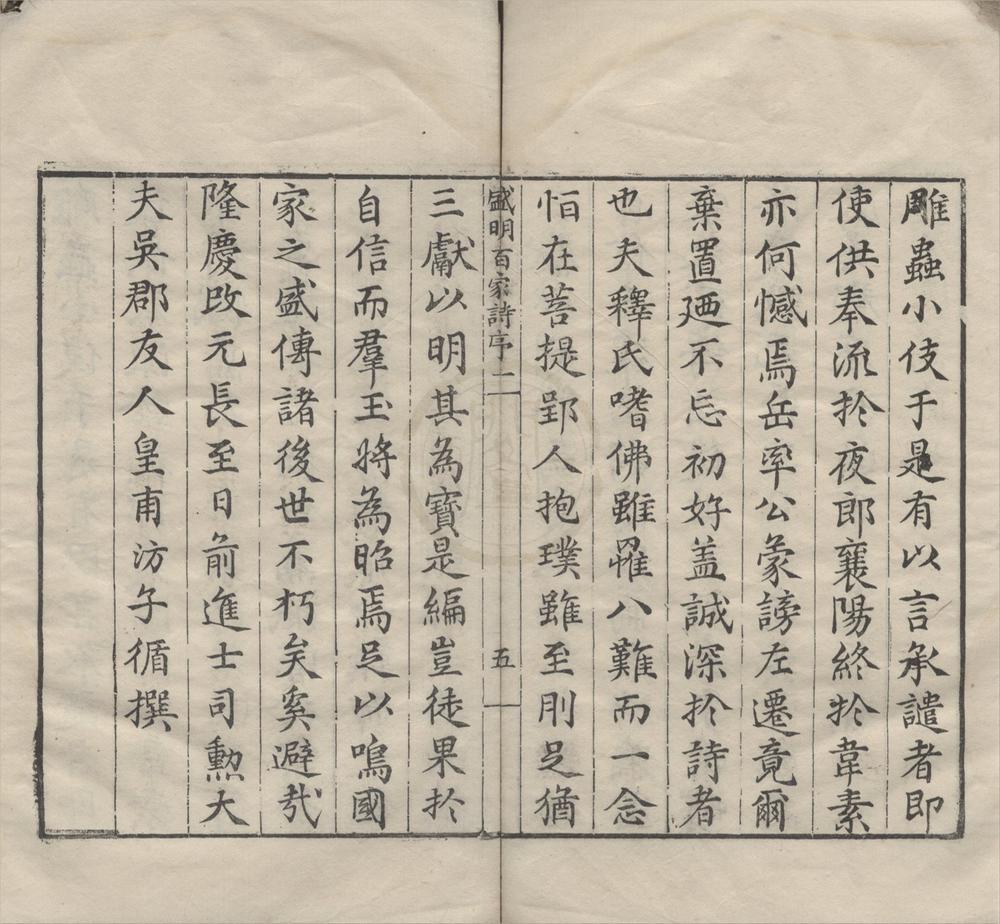 雕蟲小伎于是有以言承譴者即
使供奉流於夜郎襄陽終於韋素
亦何憾焉岳率公蒙謗左遷竟爾
棄置廼不忘初好盖誠深於詩者
也夫釋氏嗜佛雖罹八難而一念
恒在菩提郢人抱璞雖至刖足猶
盛明百家詩序二 五
三獻以明其為寶是編豈徒果於
自信而羣玉將為昭焉足以鳴國
家之盛傳諸後世不朽矣奚避㢤
隆慶改元長至日前進士司勲大
夫吳郡友人皇甫汸子循撰